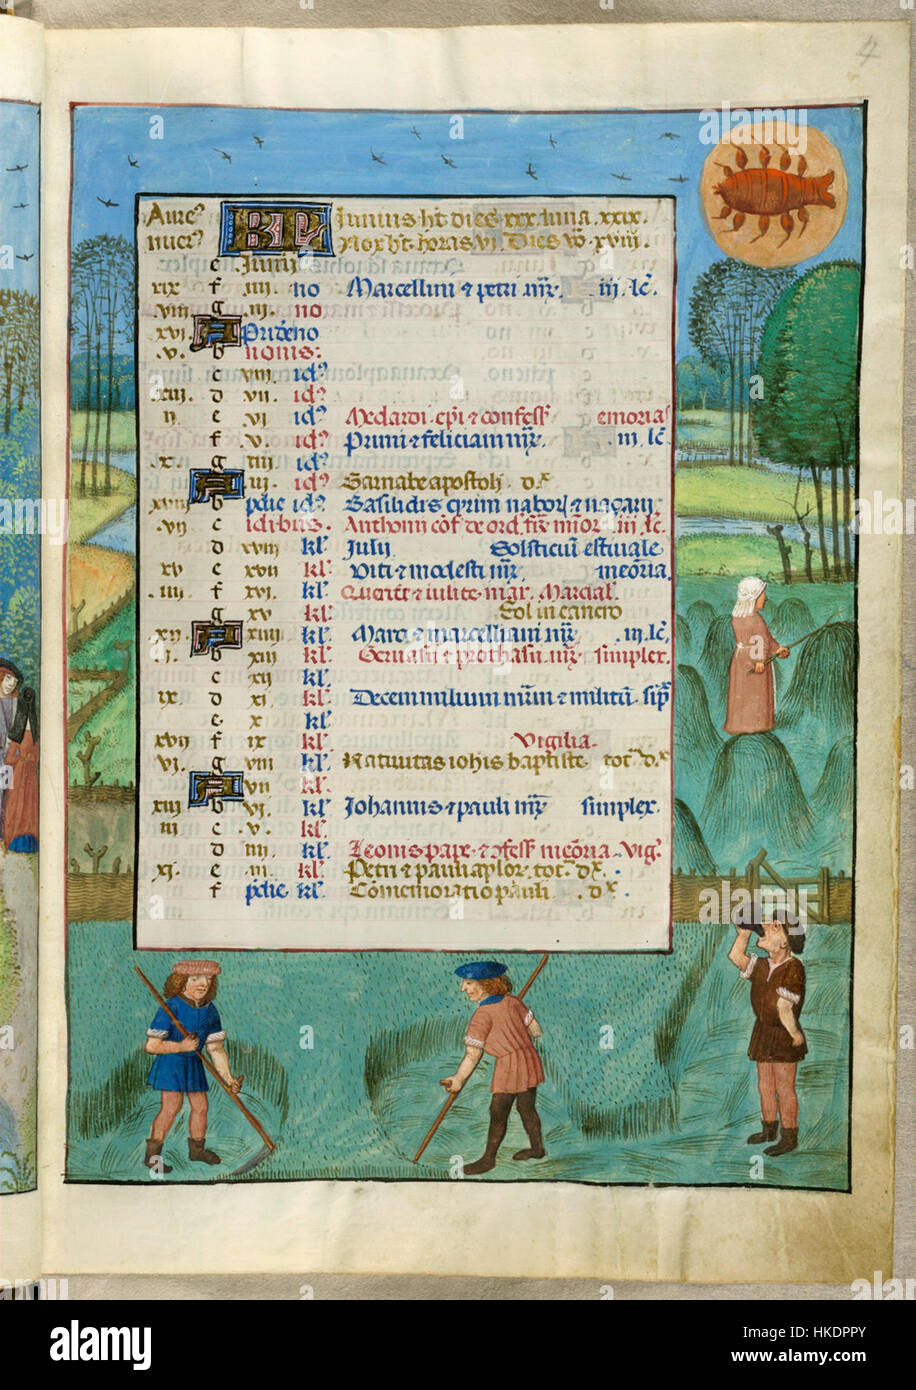 4
Aure⁹ KL Junius ht dies xxx luna xxix.
nuer⁹ Nox ht horas vi. Dies vo xviii.
e Junii
xix f iiii no Marcellini & petri mr̄. iii. lc̄.
viii g iii no
xvi A Prid'e no
v. b nonis:
c viii id⁹
xiii d vii. id⁹
ii e vi id⁹ Medardi epī & confess' emoria
f v. id⁹ Primi & feliciani mr̄. iii lc̄.
x. g iiii id⁹
A iii id⁹ Barnabe apostoli dx̄
xviii b pdie id⁹ Basilidis cirini nabor & nazarii
vii c idibus. Anthonii cōf de ord. frm̄ mior iii lc̄.
d xviii kl' Julii Solsticiū estiuale
xv e xvii kl'. Viti & modesti mr̄. meōria.
iiii. f xvi. kl'. Quirici & iulite mar. Marcial'.
g xv kl'. Sol in cancro
xii. A xiiii kl'. Marci & marcelliani mr̄. iii lc̄
i. b xiii kl'. Geruasii & prothasii mr̄. simplex.
c xii kl'.
ix d xi kl'. Decem milium mrm̄ & militū. sip̄.
e x kl'.
xvii f ix kl'. Vigilia.
vi. g viii kl'. Natiuitas iohis baptiste tot. dx̄
A vii kl'.
xiiii b vi. kl'. Johannis & pauli mr̄. simplex.
iii c v. kl'.
d iiii kl'. Leonis pape & cōfess' meōria. Vig.
xi. e iii. kl'. Petri & pauli aplor tot. dx̄.
f pdie kl'. Comemoratio pauli. dx̄.
alamy
Image ID: HKDPPY
www.alamy.com